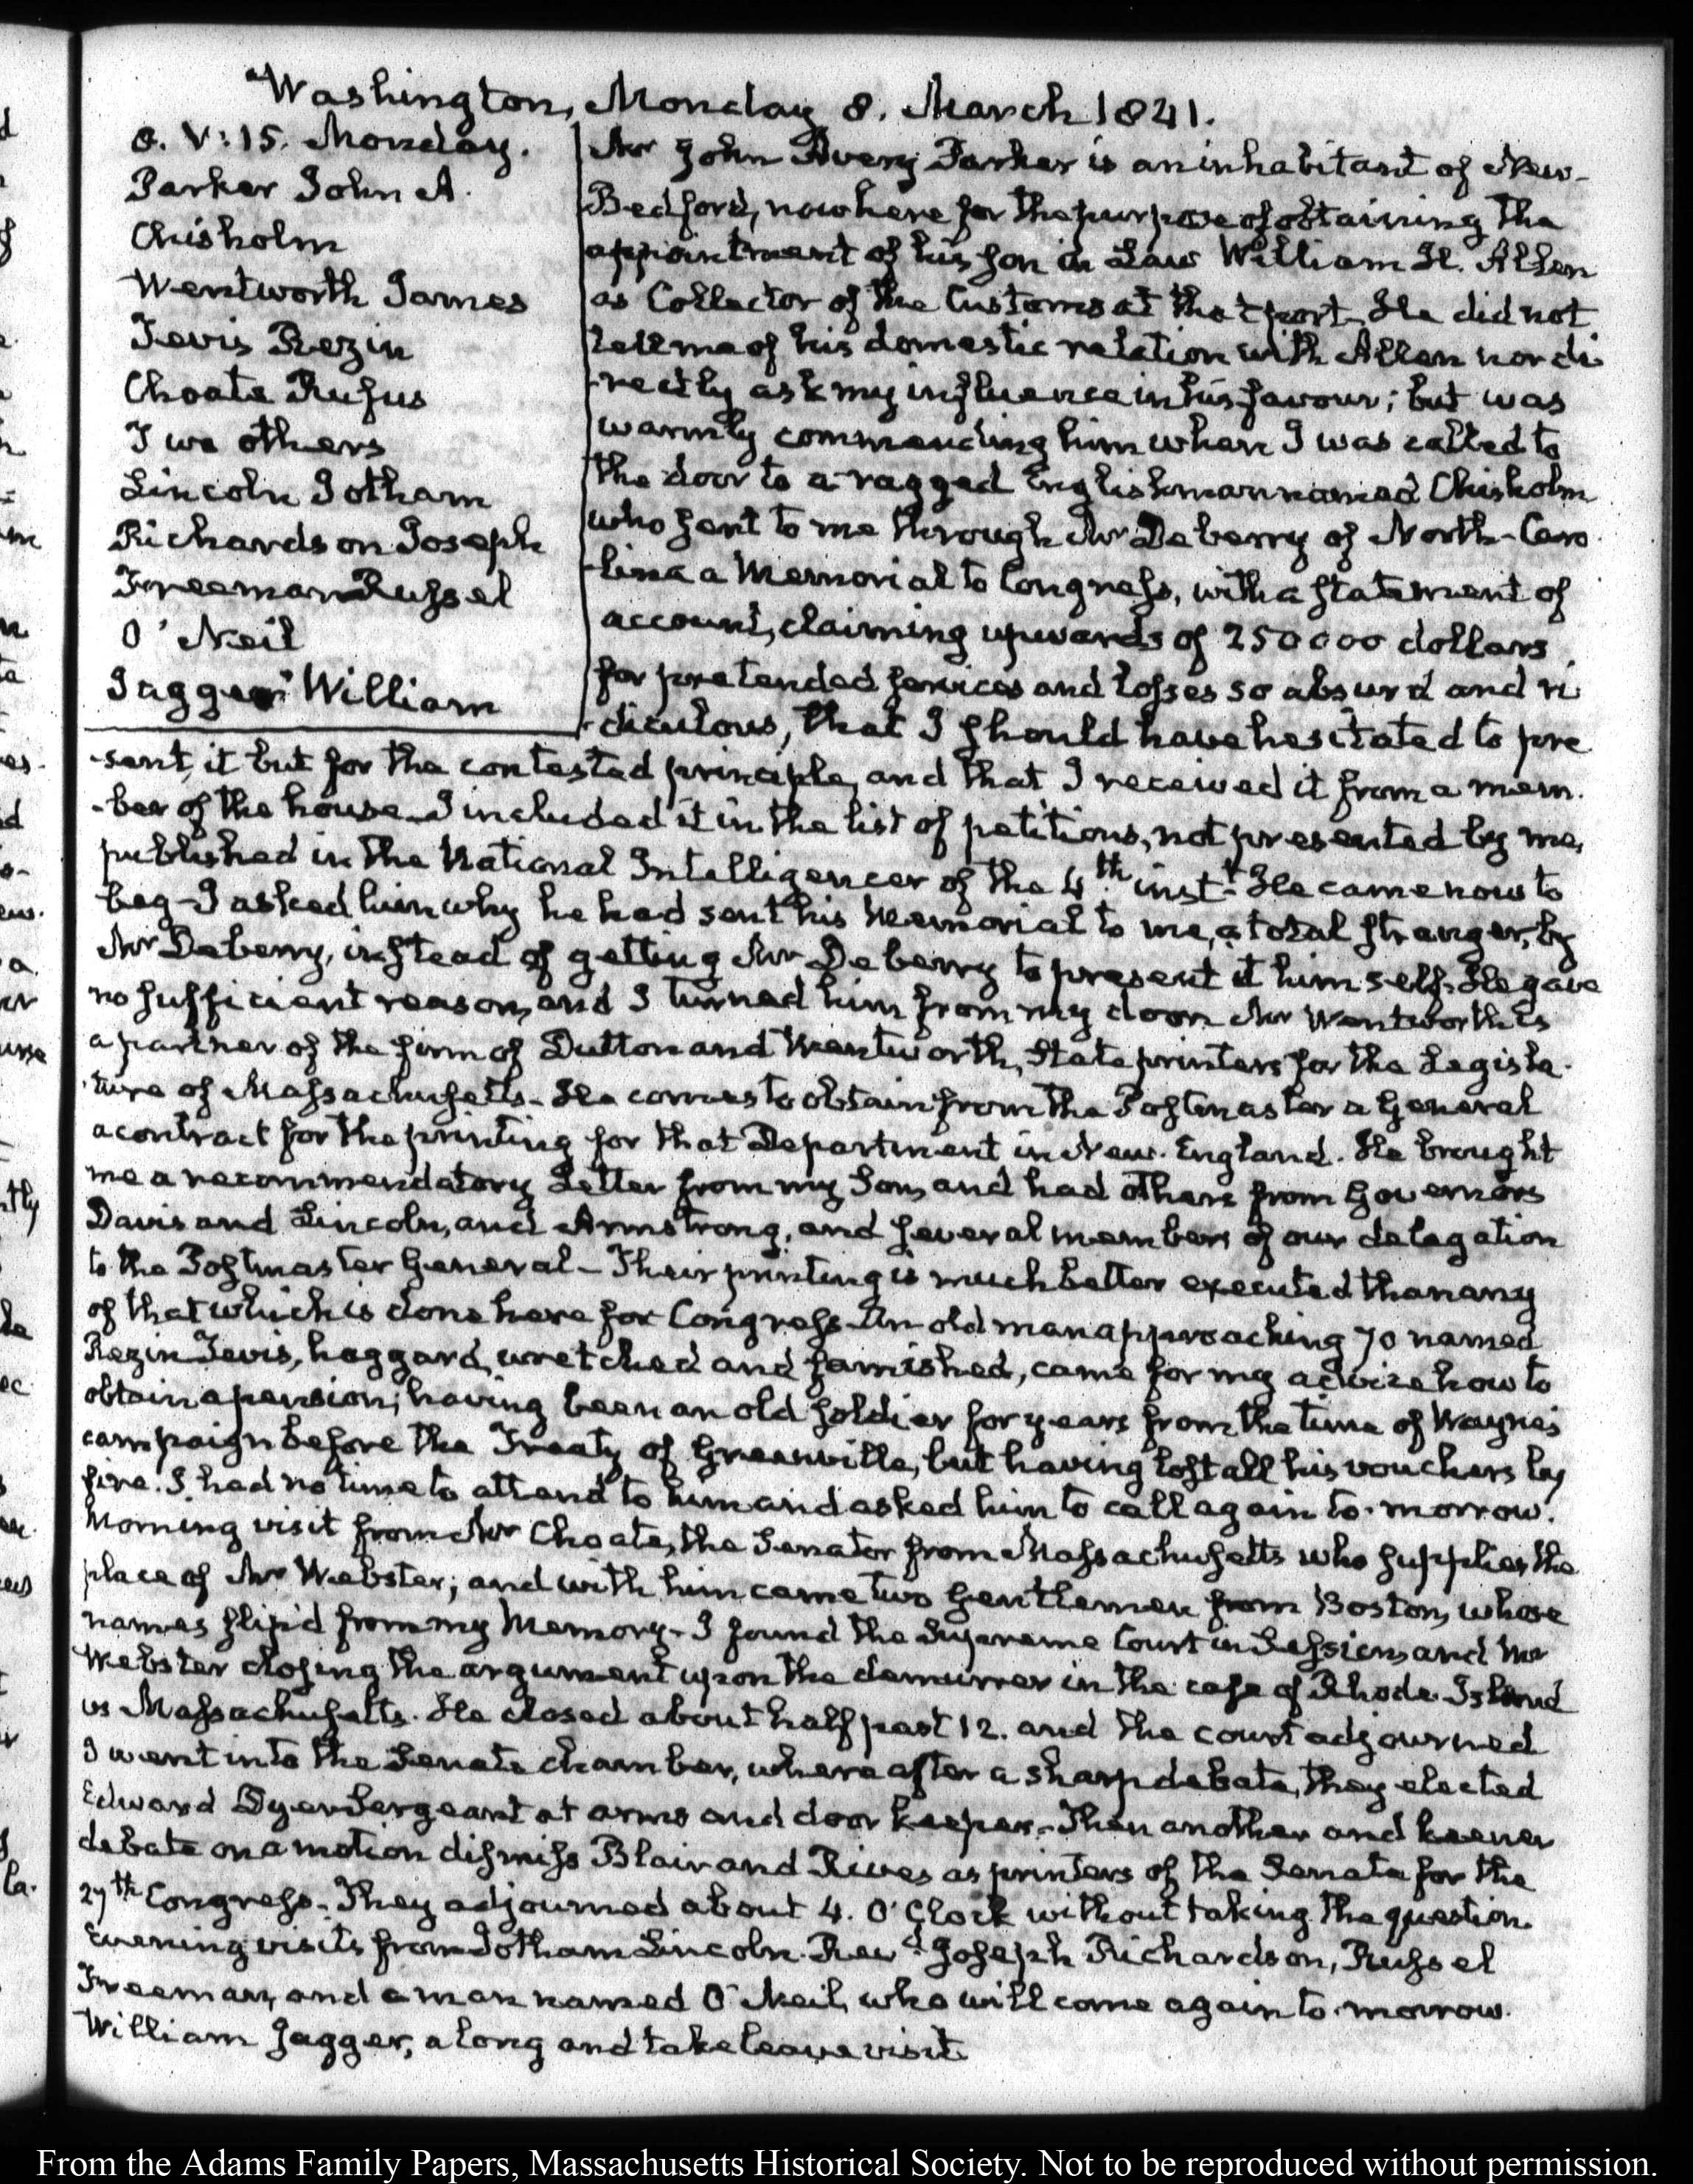 Washington, Monday 8. March 1841.
8. V:15. Monday.
Parker John A.
Chisholm
Wentworth James
Tevis Rezin
Choate Rufus
Two others
Lincoln Jotham
Richardson Joseph
Freeman Russel
O'Neil
Jagger William
Mr John Avery Parker is an inhabitant of New-
Bedford, now here for the purpose of obtaining the
appointment of his son in Law William H. Allen
as Collector of the Customs at that port. He did not
tell me of his domestic relation with Allen nor di-
-rectly ask my influence in his favour; but was
warmly commending him when I was called to
the door to a ragged Englishman named Chisholm
who sent to me through Mr Deberry of North-Caro-
-lina a Memorial to Congress, with a statement of
account, claiming upwards of 250000 dollars
for pretended services and losses so absurd and ri-
-diculous, that I should have hesitated to pre-
-sent it but for the contested principle, and that I received it from a mem-
-ber of the house. I included it in the list of petitions, not presented by me,
published in the National Intelligencer of the 4th inst. He came now to
beg- I asked him why he had sent his Memorial to me, a total stranger, by
Mr Deberry, instead of getting Mr Deberry to present it himself. He gave
no sufficient reason, and I turned him from my door. Mr Wentworth is
a partner of the firm of Dutton and Wentworth, State printers for the Legisla-
-ture of Massachusetts- He comes to obtain from the Postmaster General
a contract for the printing for that Department in New-England. He brought
me a recommendatory Letter from my Son, and had others from Governors
Davis and Lincoln, and Armstrong, and several members of our delegation
to the Postmaster General- Their printing is much better executed than any
of that which is done here for Congress. An old man approaching 70 named
Rezin Tevis, haggard, wretched and famished, came for my advice how to
obtain a pension; having been an old soldier for years from the time of Wayne's
campaign before the Treaty of Greenville, but having lost all his vouchers by
fire. I had no time to attend to him and asked him to call again to-morrow.
Morning visit from Mr Choate, the Senator from Massachusetts who supplies the
place of Mr Webster; and with him came two Gentlemen from Boston, whose
names slip'd from my Memory- I found the Supreme Court in Session, and Mr
Webster closing the argument upon the demurrer in the case of Rhode-Island
vs Massachusetts. He closed about half past 12. and the court adjourned
I went into the Senate chamber, where after a sharp debate, they elected
Edward Dyer Sergeant at arms and door keeper- Then another and keener
debate on a motion dismiss Blair and Rives as printers of the Senate for the
27th Congress- They adjourned about 4. O'Clock without taking the question
Evening visits from Jotham Lincoln. Revd Joseph Richardson, Russel
Freeman, and a man named O'Neil, who will come again to-morrow.
William Jagger, a long and take leave visit.
From the Adams Family Papers, Massachusetts Historical Society. Not to be reproduced without permission.